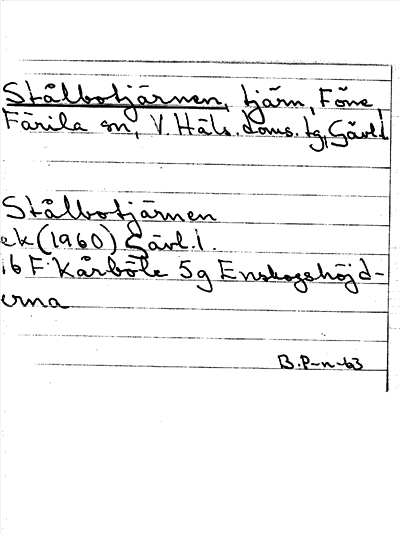 Stålbotjärnen, tjärn, Föne,
Färila sn, V. Häls. doms. tg, Gävl. l
Stålbotjärnen
ek (1960) Gävl. l.
16 F Kårböle 5g Enskogshöjd-
erna
B. P-n -63